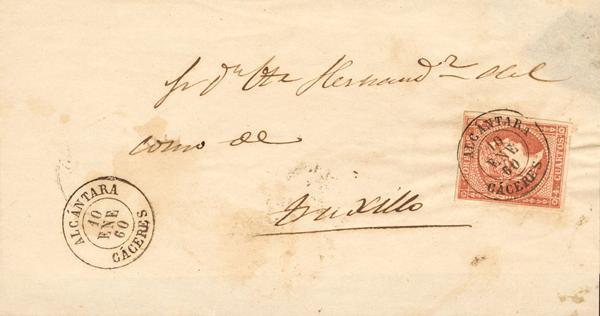 Sr Dn Vte Hernandz del
como de
Truxillo
ALCÁNTARA
10
ENE
60
CÁCERES
ALCÁNTARA
10
ENE
60
CÁCERES
4 CUARTOS